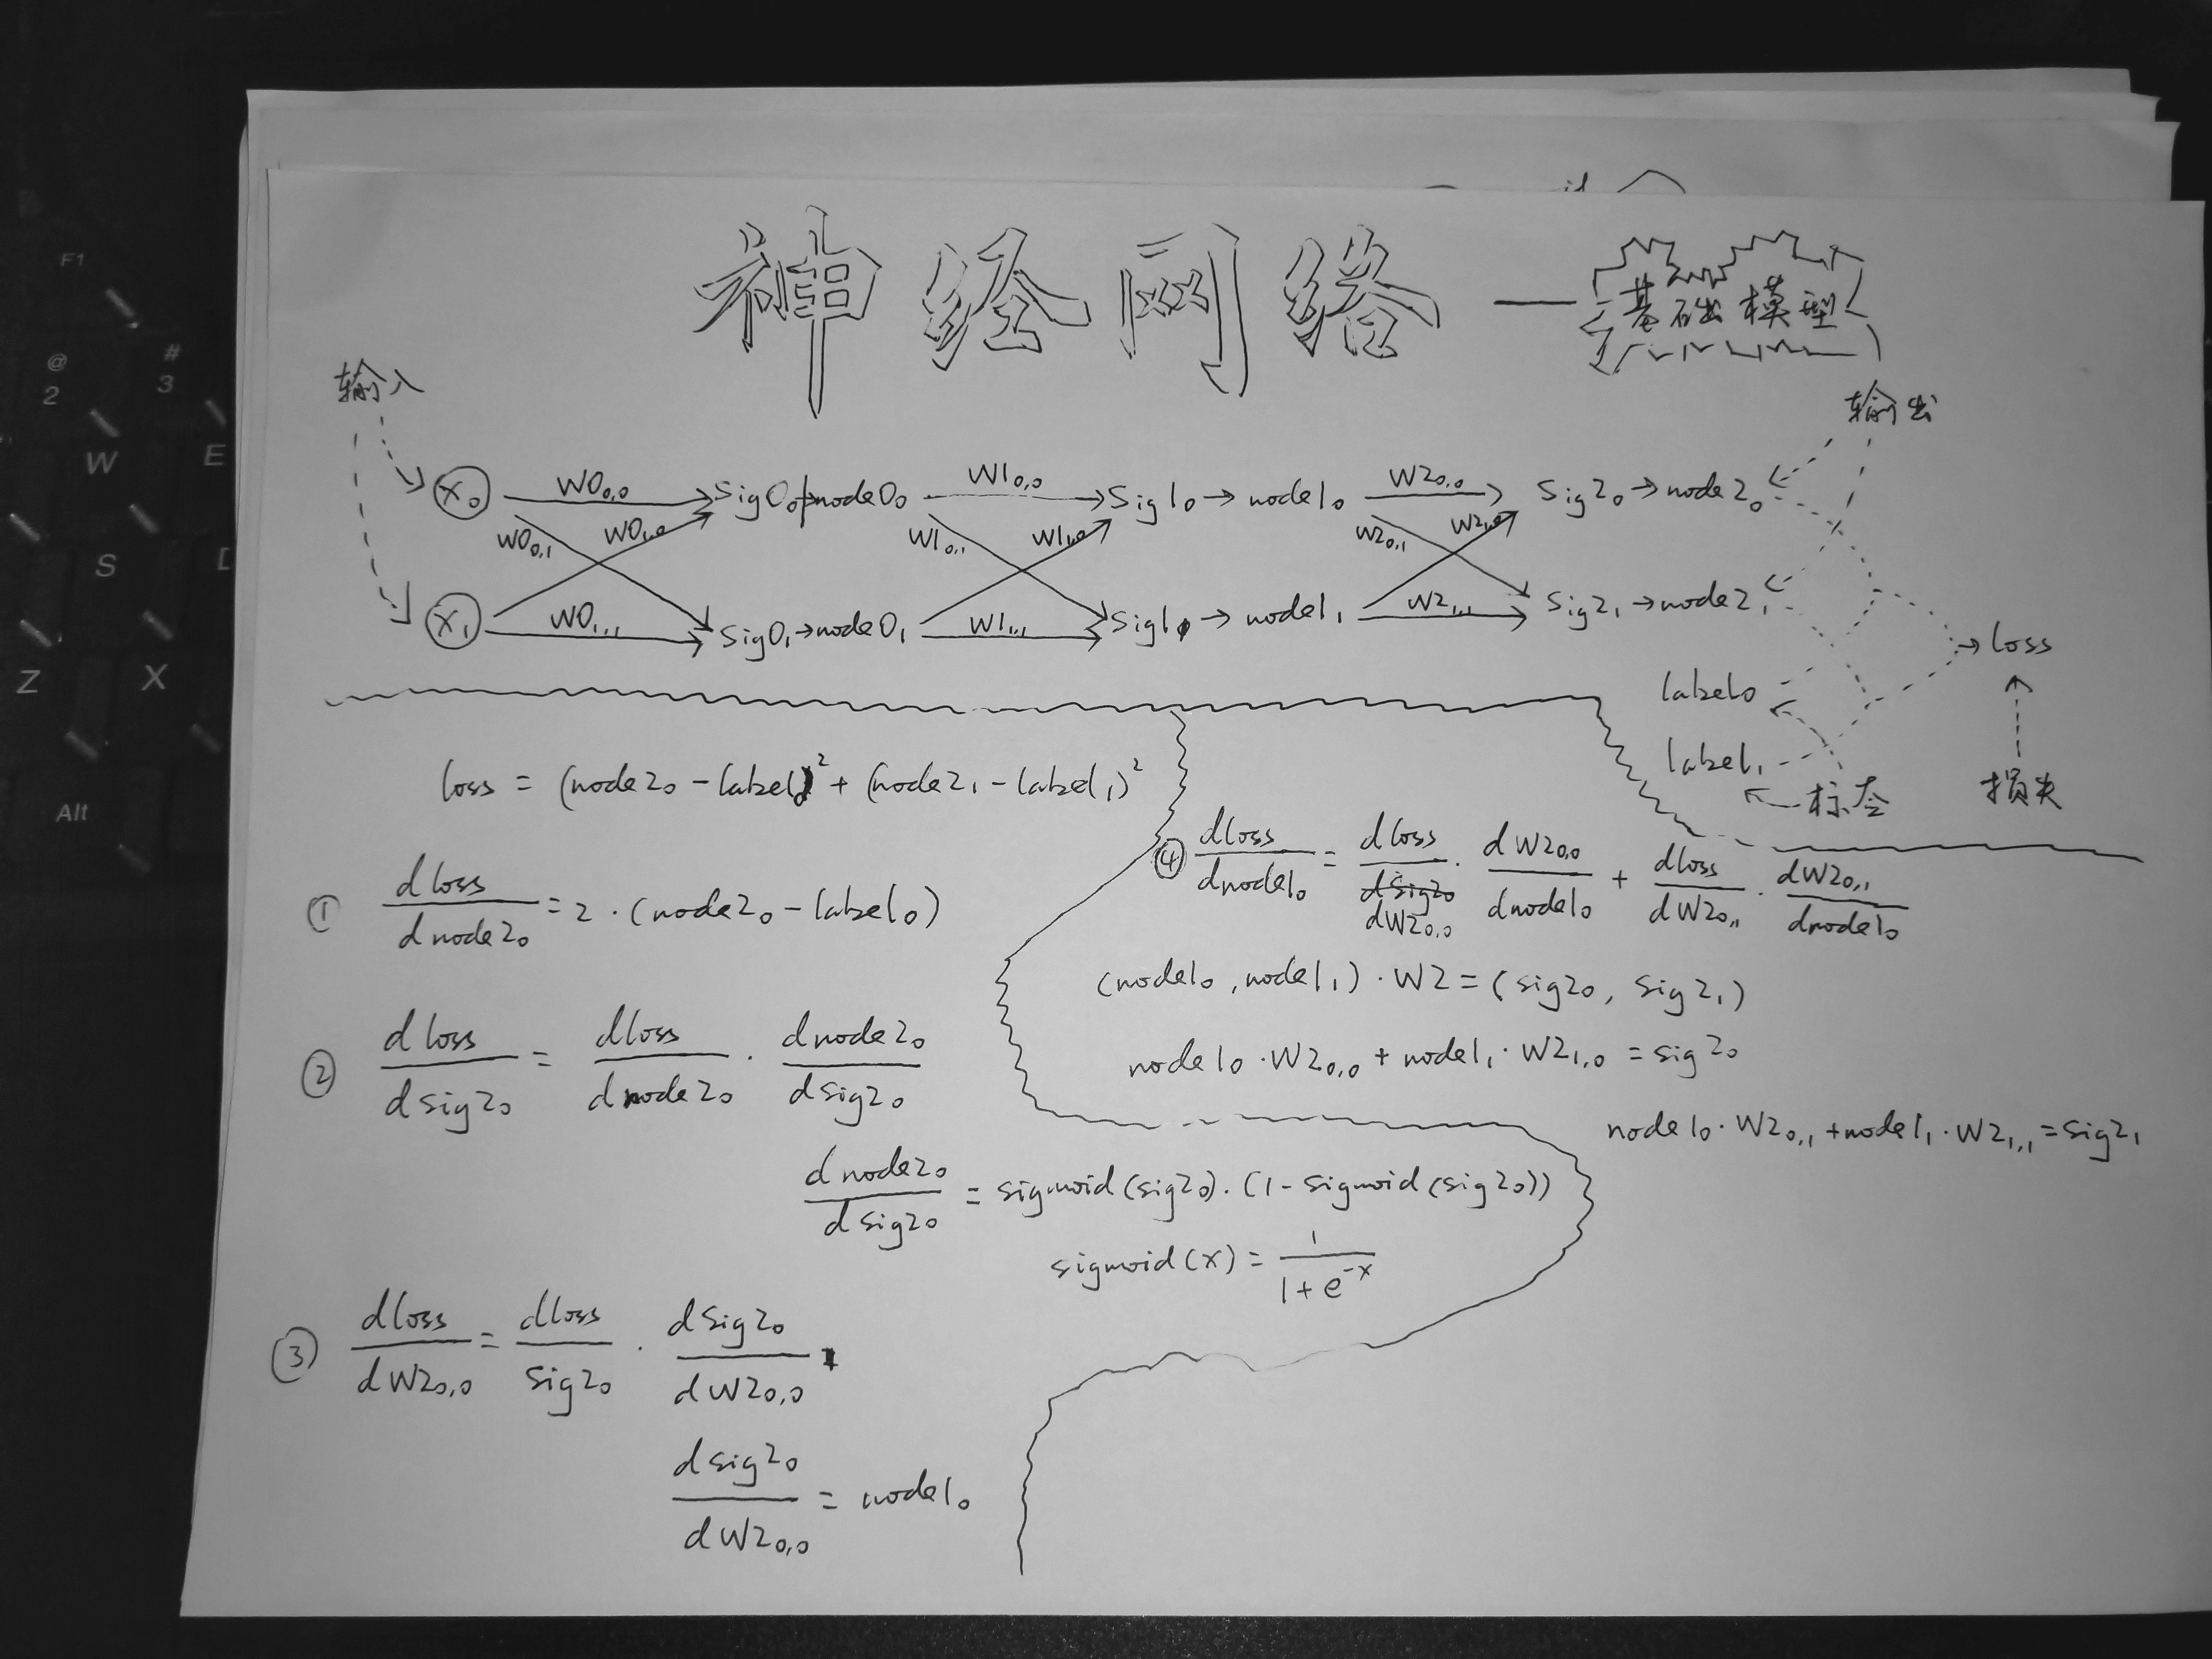 神经网络—基础模型
输入
输出
x₀ W0₀,₀ Sig0₀→node0₀ W1₀,₀ Sig1₀→node1₀ W2₀,₀ Sig2₀→node2₀
W0₀,₁ W0₁,₀ W1₀,₁ W1₁,₀ W2₀,₁ W2₁,₀
x₁ W0₁,₁ Sig0₁→node0₁ W1₁,₁ Sig1₁→node1₁ W2₁,₁ Sig2₁→node2₁
loss
label₀
label₁
标签
损失
loss = (node2₀-label₀)²+(node2₁-label₁)²
① dloss/dnode2₀=2·(node2₀-label₀)
② dloss/dsig2₀=dloss/dnode2₀·dnode2₀/dsig2₀
dnode2₀/dsig2₀=sigmoid(sig2₀)·(1-sigmoid(sig2₀))
sigmoid(x)=1/1+e⁻ˣ
③ dloss/dW2₀,₀=dloss/sig2₀·dsig2₀/dW2₀,₀
dsig2₀/dW2₀,₀=node1₀
④ dloss/dnode1₀=dloss/dW2₀,₀·dW2₀,₀/dnode1₀+dloss/dW2₀,₁·dW2₀,₁/dnode1₀
(node1₀,node1₁)·W2=(sig2₀,sig2₁)
node1₀·W2₀,₀+node1₁·W2₁,₀=sig2₀
node1₀·W2₀,₁+node1₁·W2₁,₁=sig2₁
F1
@
2
#
3
W
E
S
Z
X
Alt